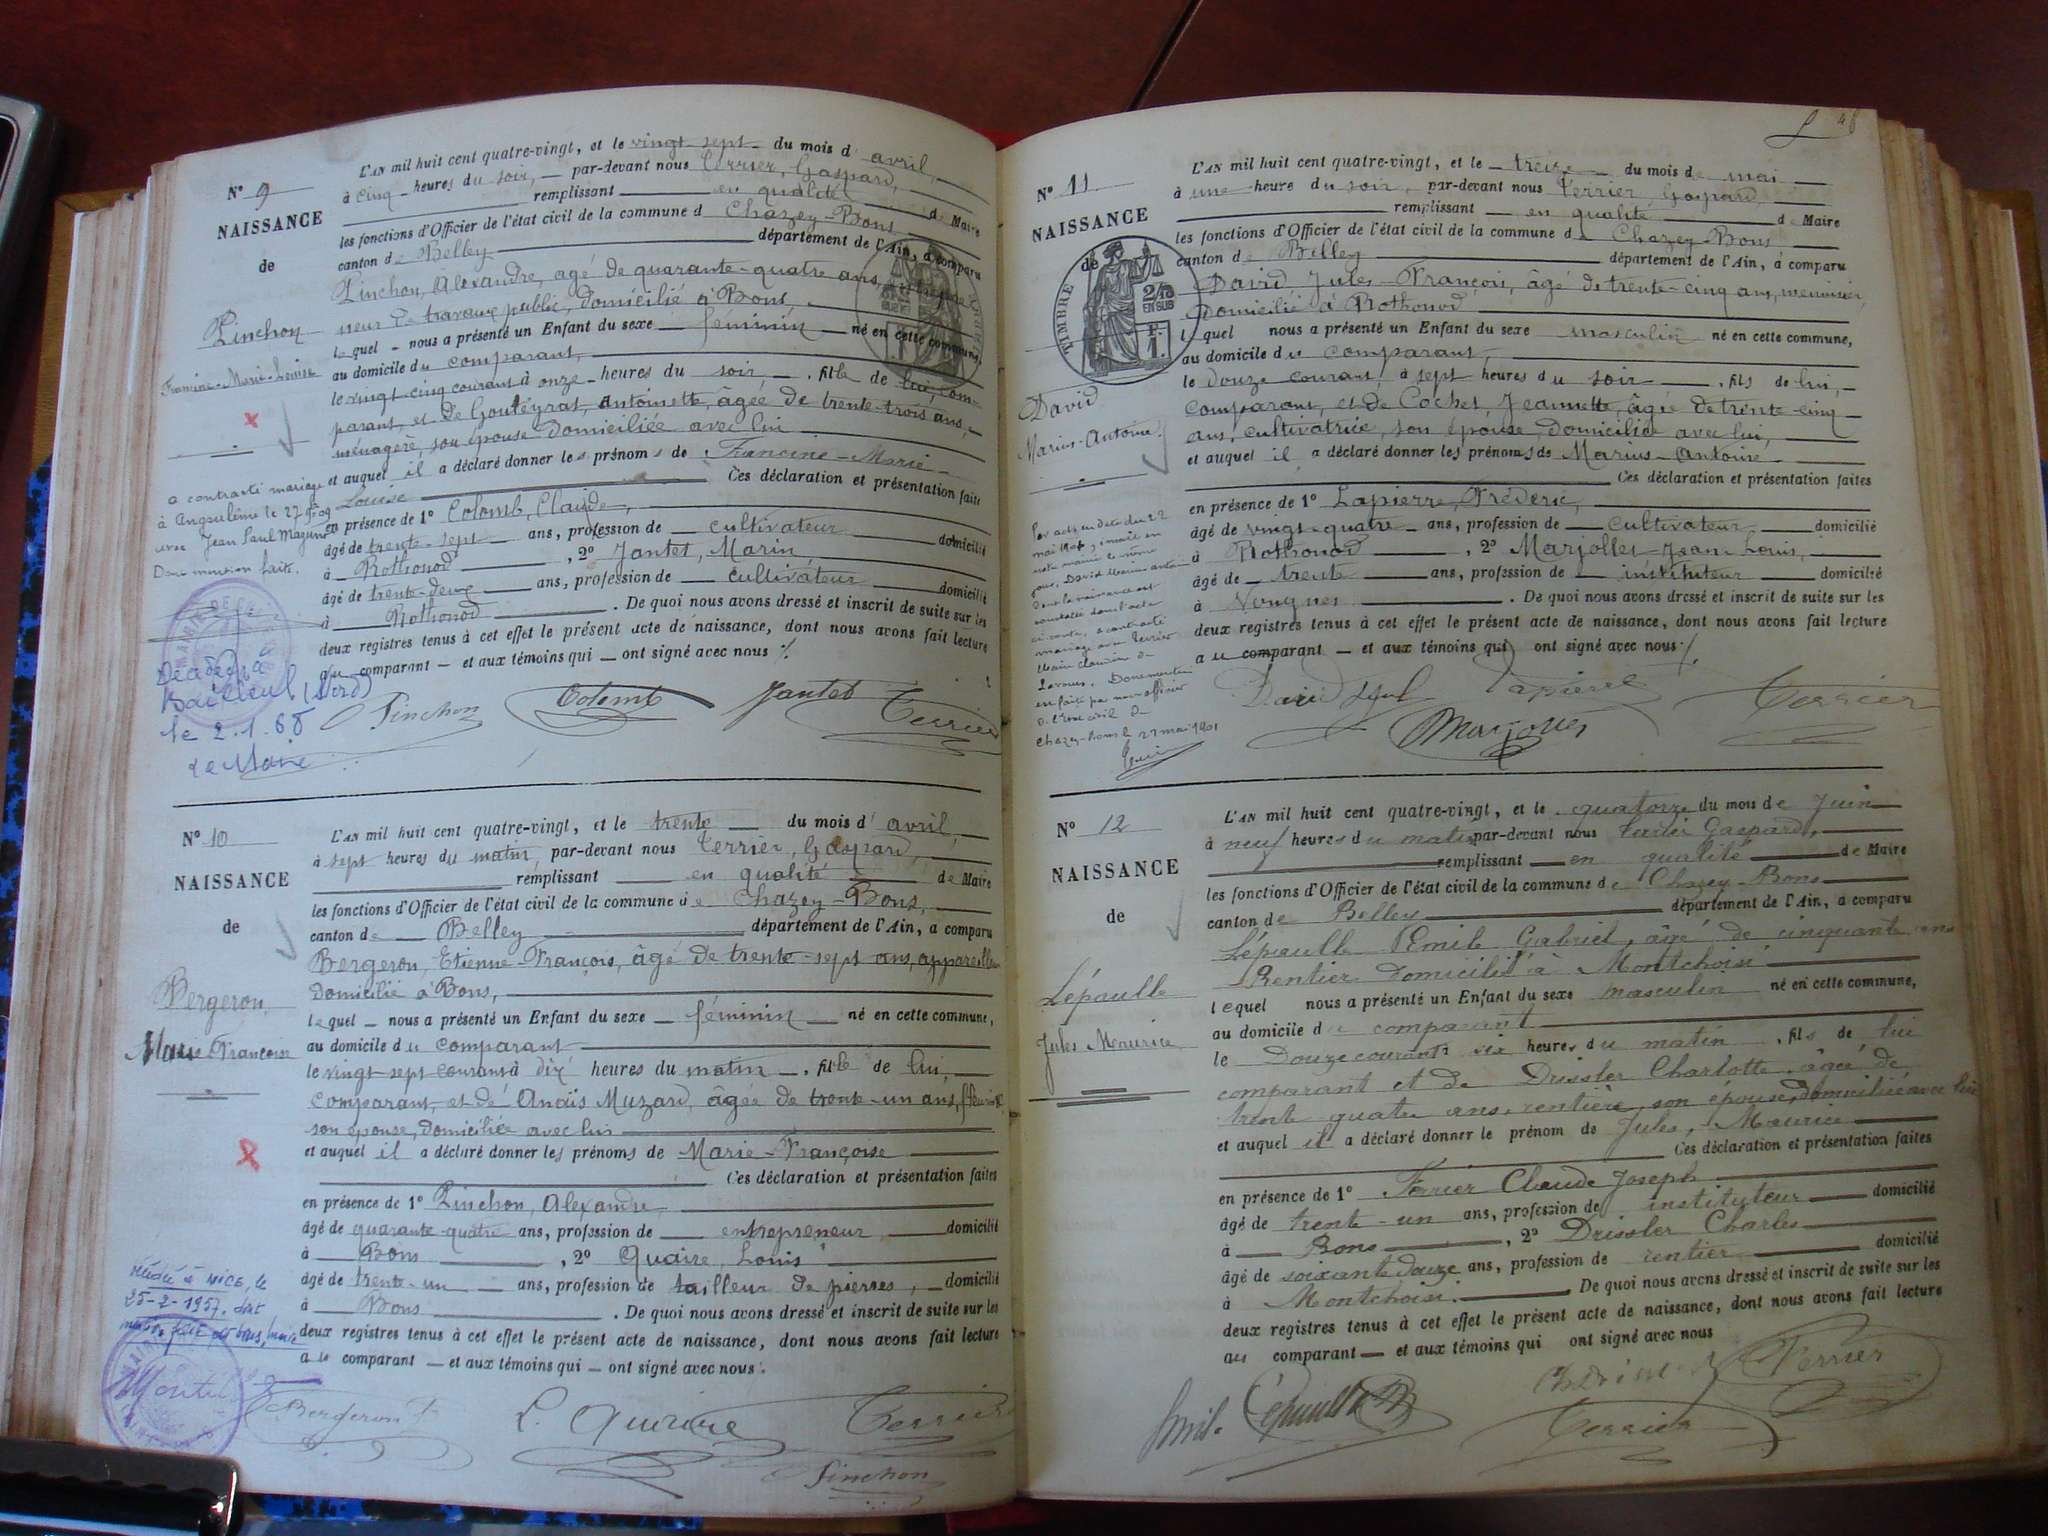 N° 9
NAISSANCE
de
Pinchon
Francine-Marie-Louise
a contracté mariage
à Angoulême le 27
avec Jean Paul
Dont mention faite.
Décédée à
Bailleul (Nord)
le 2.1.68
Le Maire
L'AN mil huit cent quatre-vingt, et le vingt sept du mois d'avril,
à cinq heures du soir, par-devant nous Terrier, Gaspard,
remplissant en qualité de Maire
les fonctions d'Officier de l'état civil de la commune de Chazey-Bons
canton de Belley département de l'Ain, a comparu
Pinchon, Alexandre, âgé de quarante-quatre ans, entrepre-
neur de travaux public, domicilié à Bons,
lequel nous a présenté un Enfant du sexe féminin né en cette commune,
au domicile du comparant,
le vingt-cinq courant à onze heures du soir, fille de lui, com-
parant, et de Gouteyrat, Antoinette, âgée de trente-trois ans,
ménagère, son épouse domiciliée avec lui
et auquel il a déclaré donner les prénoms de Francine-Marie-
Louise Ces déclaration et présentation faites
en présence de 1° Colomb, Claude,
âgé de trente-sept ans, profession de cultivateur domicilié
à Rothonod, 2° Jantet, Marin
âgé de trente-deux ans, profession de cultivateur domicilié
à Rothonod. De quoi nous avons dressé et inscrit de suite sur les
deux registres tenus à cet effet le présent acte de naissance, dont nous avons fait lecture
au comparant et aux témoins qui ont signé avec nous
Pinchon Colomb Jantet Terrier
N° 10
NAISSANCE
de
Bergeron,
Marie-Françoise
décédée à NICE, le
25-2-1957.
L'AN mil huit cent quatre-vingt, et le trente du mois d'avril,
à sept heures du matin, par-devant nous Terrier, Gaspard,
remplissant en qualité de Maire
les fonctions d'Officier de l'état civil de la commune de Chazey-Bons,
canton de Belley département de l'Ain, a comparu
Bergeron, Etienne-François, âgé de trente-sept ans, appareilleur
domicilié à Bons,
lequel nous a présenté un Enfant du sexe féminin né en cette commune,
au domicile du comparant
le vingt-sept courant à dix heures du matin, fille de lui,
comparant, et de Anaïs Muzard, âgée de trente-un ans,
son épouse, domiciliée avec lui
et auquel il a déclaré donner les prénoms de Marie-Françoise
Ces déclaration et présentation faites
en présence de 1° Pinchon, Alexandre,
âgé de quarante-quatre ans, profession de entrepreneur domicilié
à Bons, 2° Quaire, Louis
âgé de trente-un ans, profession de tailleur de pierres, domicilié
à Bons. De quoi nous avons dressé et inscrit de suite sur les
deux registres tenus à cet effet le présent acte de naissance, dont nous avons fait lecture
au comparant et aux témoins qui ont signé avec nous.
Bergeron L. Quaire Terrier
Pinchon
48
N° 11
NAISSANCE
de
TIMBRE
2/10
EN SUS
David
Marius-Antoine
Par acte en date du 22
mai 1901, inscrit en
notre mairie le même
jour, David Marius Antoine
dont la naissance est
constatée dans l'acte
ci contre, a contracté
mariage avec
Chazey-Bons le 27 mai 1901
L'AN mil huit cent quatre-vingt, et le treize du mois de mai
à une heure du soir, par-devant nous Terrier, Gaspard,
remplissant en qualité de Maire
les fonctions d'Officier de l'état civil de la commune de Chazey-Bons
canton de Belley département de l'Ain, a comparu
David, Jules-François, âgé de trente-cinq ans, menuisier,
domicilié à Rothonod
lequel nous a présenté un Enfant du sexe masculin né en cette commune,
au domicile du comparant,
le douze courant, à sept heures du soir, fils de lui,
comparant, et de Cochet, Jeannette, âgée de trente-cinq
ans, cultivatrice, son épouse, domiciliée avec lui,
et auquel il a déclaré donner les prénoms de Marius-Antoine
Ces déclaration et présentation faites
en présence de 1° Lapierre, Fréderic,
âgé de vingt-quatre ans, profession de cultivateur domicilié
à Rothonod, 2° Marjollet Jean Louis,
âgé de trente ans, profession de instituteur domicilié
à Vongnes. De quoi nous avons dressé et inscrit de suite sur les
deux registres tenus à cet effet le présent acte de naissance, dont nous avons fait lecture
au comparant et aux témoins qui ont signé avec nous
David Lapierre Terrier
Marjollet
N° 12
NAISSANCE
de
Lépaulle
Jules Maurice
L'AN mil huit cent quatre-vingt, et le quatorze du mois de Juin
à neuf heures du matin par-devant nous Terrier Gaspard,
remplissant en qualité de Maire
les fonctions d'Officier de l'état civil de la commune de Chazey-Bons
canton de Belley département de l'Ain, a comparu
Lépaulle Emile Gabriel, âgé de cinquante ans
Rentier domicilié à Montchoisi
lequel nous a présenté un Enfant du sexe masculin né en cette commune,
au domicile du comparant
le Douze courant six heures du matin, fils de lui
comparant et de Drissler Charlotte, âgée de
trent quatre ans, rentière, son épouse, domiciliée avec lui
et auquel il a déclaré donner le prénom de Jules, Maurice
Ces déclaration et présentation faites
en présence de 1° Ferrier Claude Joseph
âgé de trente-un ans, profession de instituteur domicilié
à Bons, 2° Drissler Charles
âgé de soixante douze ans, profession de rentier domicilié
à Montchoisi. De quoi nous avons dressé et inscrit de suite sur les
deux registres tenus à cet effet le présent acte de naissance, dont nous avons fait lecture
au comparant et aux témoins qui ont signé avec nous
Emile Lépaulle Ferrier
Terrier